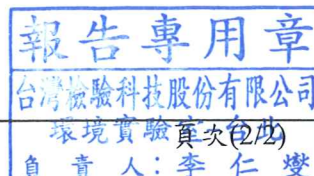 報告專用章
台灣檢驗科技股份有限公司
環境實驗室-台北
頁次(2/2)
負責人：李仁燮